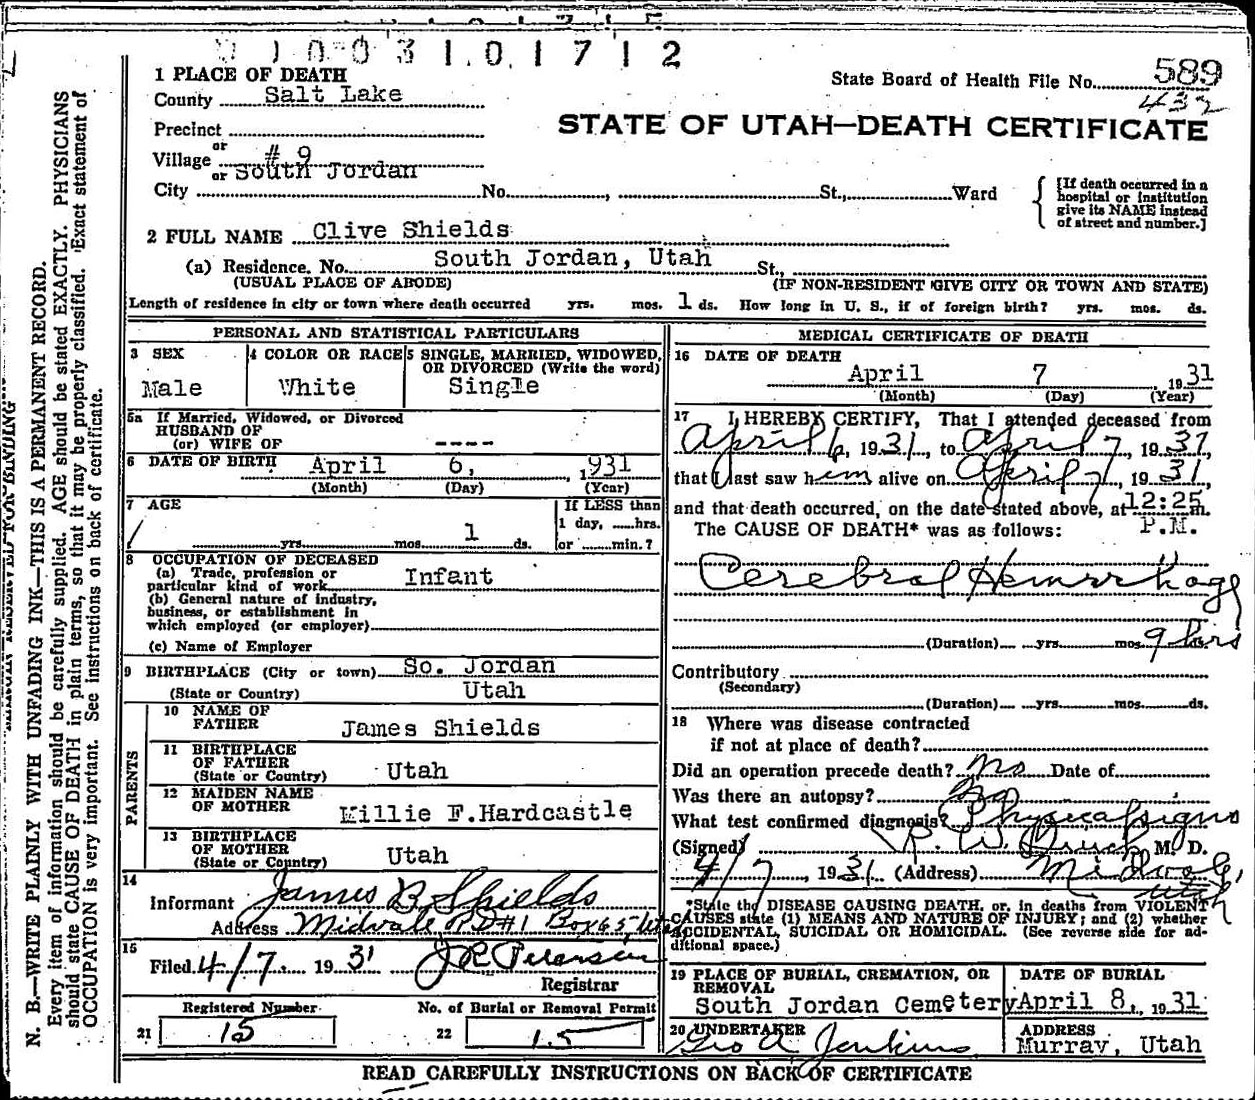 1003101712
1 PLACE OF DEATH
State Board of Health File No. 589
432
County Salt Lake
STATE OF UTAH—DEATH CERTIFICATE
Precinct
or
Village # 9
or South Jordan
City No. , St., Ward
[If death occurred in a hospital or institution give its NAME instead of street and number.]
2 FULL NAME Clive Shields
(a) Residence. No. South Jordan, Utah St.,
(USUAL PLACE OF ABODE) (IF NON-RESIDENT GIVE CITY OR TOWN AND STATE)
Length of residence in city or town where death occurred yrs. mos. 1 ds. How long in U. S., if of foreign birth? yrs. mos. ds.
PERSONAL AND STATISTICAL PARTICULARS
3 SEX
Male
4 COLOR OR RACE
White
5 SINGLE, MARRIED, WIDOWED, OR DIVORCED (Write the word)
Single
5a If Married, Widowed, or Divorced
HUSBAND OF
(or) WIFE OF ----
6 DATE OF BIRTH April 6, ,931
(Month) (Day) (Year)
7 AGE
yrs. mos. 1 ds.
If LESS than
1 day, ......hrs.
or ........min.?
8 OCCUPATION OF DECEASED
(a) Trade, profession or
particular kind of work Infant
(b) General nature of industry,
business, or establishment in
which employed (or employer)
(c) Name of Employer
9 BIRTHPLACE (City or town) So. Jordan
(State or Country) Utah
PARENTS
10 NAME OF
FATHER James Shields
11 BIRTHPLACE
OF FATHER
(State or Country) Utah
12 MAIDEN NAME
OF MOTHER Millie F.Hardcastle
13 BIRTHPLACE
OF MOTHER
(State or Country) Utah
14
Informant James B Shields
Address Midvale RD#1 Box 65, Utah
15
Filed 4/7 1931 J R Peterson
Registrar
Registered Number
21 15
No. of Burial or Removal Permit
22 15
MEDICAL CERTIFICATE OF DEATH
16 DATE OF DEATH
April 7 , 1931
(Month) (Day) (Year)
17 I, HEREBY CERTIFY, That I attended deceased from
April 6, 1931, to April 7, 1931,
that I last saw him alive on April 7, 1931,
and that death occurred, on the date stated above, at 12:25 m.
P.M.
The CAUSE OF DEATH* was as follows:
Cerebral Hemorrhage
(Duration) yrs. mos. 9 hrs
Contributory
(Secondary)
(Duration) yrs. mos. ds.
18 Where was disease contracted
if not at place of death?
Did an operation precede death? no Date of
Was there an autopsy? no
What test confirmed diagnosis? Physical signs
(Signed) M. D.
4/7, 1931 (Address) Midvale,
Utah
*State the DISEASE CAUSING DEATH, or, in deaths from VIOLENT
CAUSES state (1) MEANS AND NATURE OF INJURY; and (2) whether
ACCIDENTAL, SUICIDAL OR HOMICIDAL. (See reverse side for additional space.)
19 PLACE OF BURIAL, CREMATION, OR
REMOVAL
South Jordan Cemetery
DATE OF BURIAL
April 8, 1931
20 UNDERTAKER
Geo A Jenkins
ADDRESS
Murray, Utah
READ CAREFULLY INSTRUCTIONS ON BACK OF CERTIFICATE
N. B.—WRITE PLAINLY WITH UNFADING INK—THIS IS A PERMANENT RECORD.
Every item of information should be carefully supplied. AGE should be stated EXACTLY. PHYSICIANS
should state CAUSE OF DEATH in plain terms, so that it may be properly classified. Exact statement of
OCCUPATION is very important. See instructions on back of certificate.